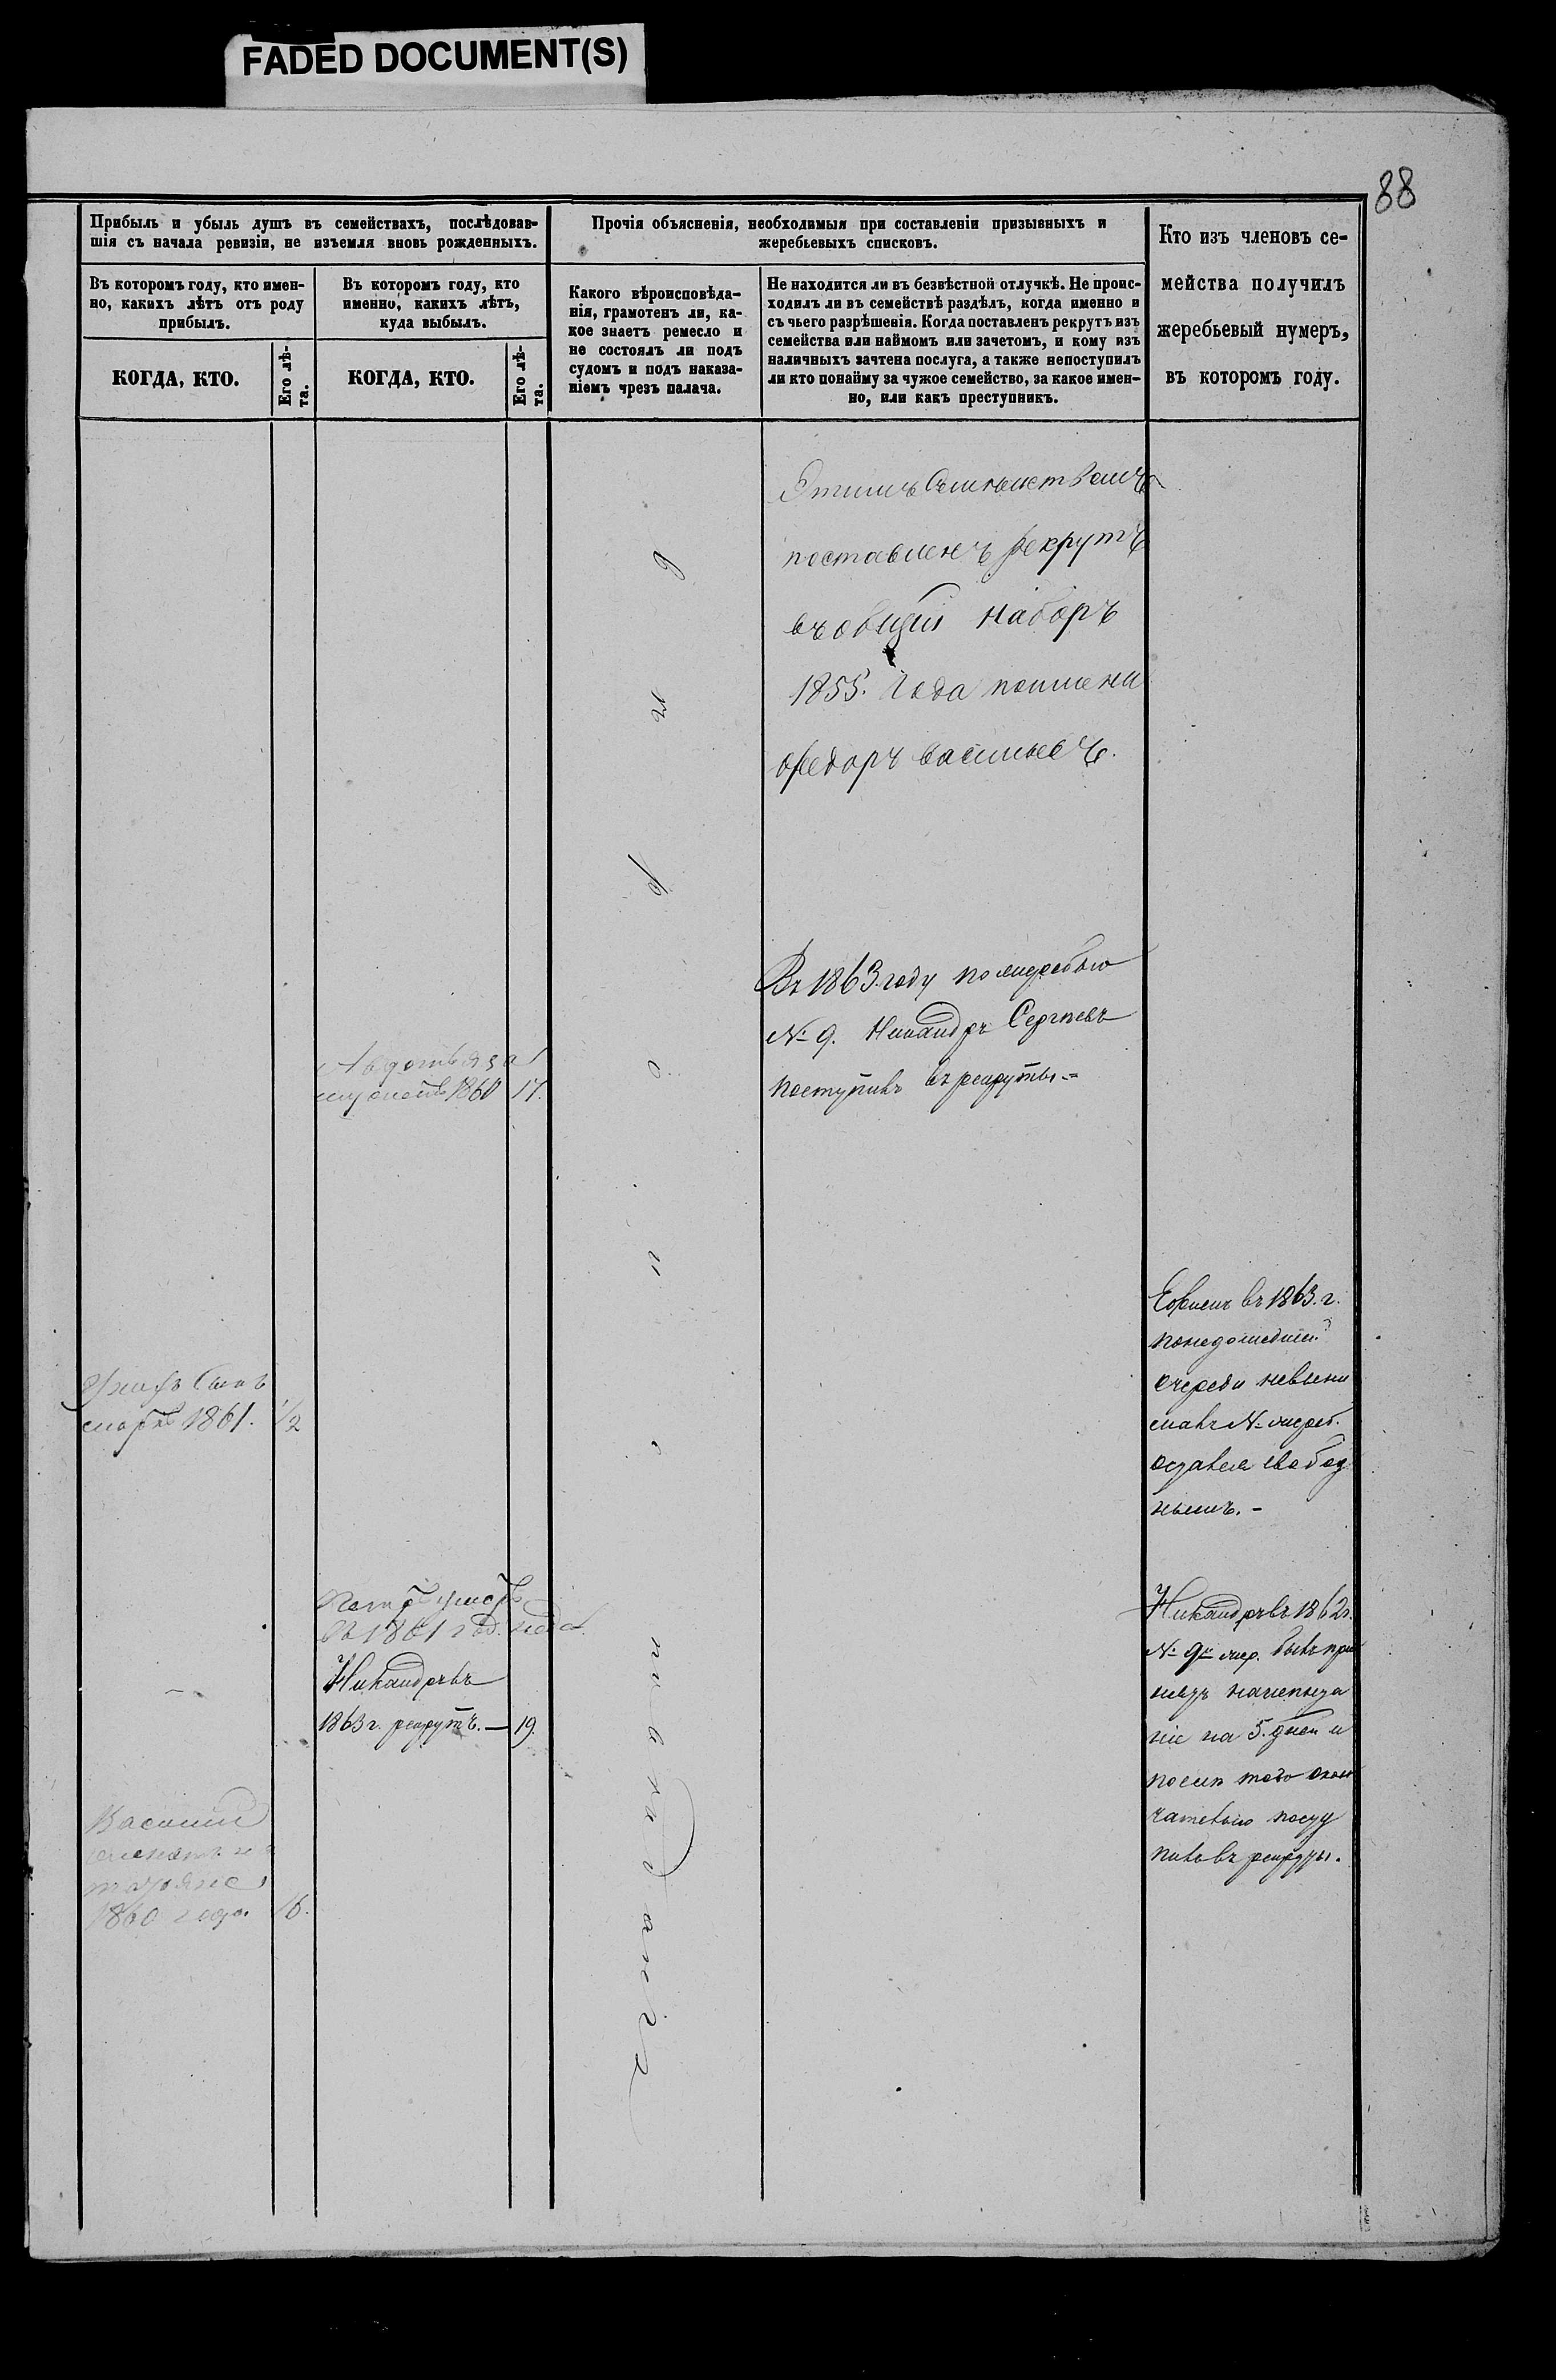 FADED DOCUMENT(S)
88
Прибыль и убыль душъ въ семействахъ, послѣдовав-
шія съ начала ревизіи, не изъемля вновь рожденныхъ.
Въ которомъ году, кто имен-
но, какихъ лѣтъ отъ роду
прибылъ.
КОГДА, КТО.
Его лѣ-
та.
Въ которомъ году, кто
именно, какихъ лѣтъ,
куда выбылъ.
КОГДА, КТО.
Его лѣ-
та.
Прочія объясненія, необходимыя при составленіи призывныхъ и
жеребьевыхъ списковъ.
Какого вѣроисповѣда-
нія, грамотенъ ли, ка-
кое знаетъ ремесло и
не состоялъ ли подъ
судомъ и подъ наказа-
ніемъ чрезъ палача.
Не находится ли въ безвѣстной отлучкѣ. Не проис-
ходилъ ли въ семействѣ раздѣлъ, когда именно и
съ чьего разрѣшенія. Когда поставленъ рекрутъ изъ
семейства или наймомъ или зачетомъ, и кому изъ
наличныхъ зачтена послуга, а также непоступилъ
ли кто понайму за чужое семейство, за какое имен-
но, или какъ преступникъ.
Кто изъ членовъ се-
мейства получилъ
жеребьевый нумеръ,
въ которомъ году.
1861. 1/2
Василий
1860 года 16.
1860 17.
Петръ умеръ
въ 1861 год.
Никандръ въ
1863 г. рекрутъ. — 19.
вѣроис
Этимъ Семействомъ
поставленъ рекрутъ
въ общій наборъ
1855. Года поимени
Федоръ васильевъ.
Въ 1863 году по жеребью
№ 9. Никандръ Сергѣевъ
поступилъ въ рекруты. =
въ 1863. г.
понедошедшей
очереди невыни
малъ № жереб.
свобод
нымъ. -
Никандръ въ 1862 г.
№ 9й жер. былъ при
на 5. дней и
послѣ того окон
чательно посту
пилъ въ рекруты.